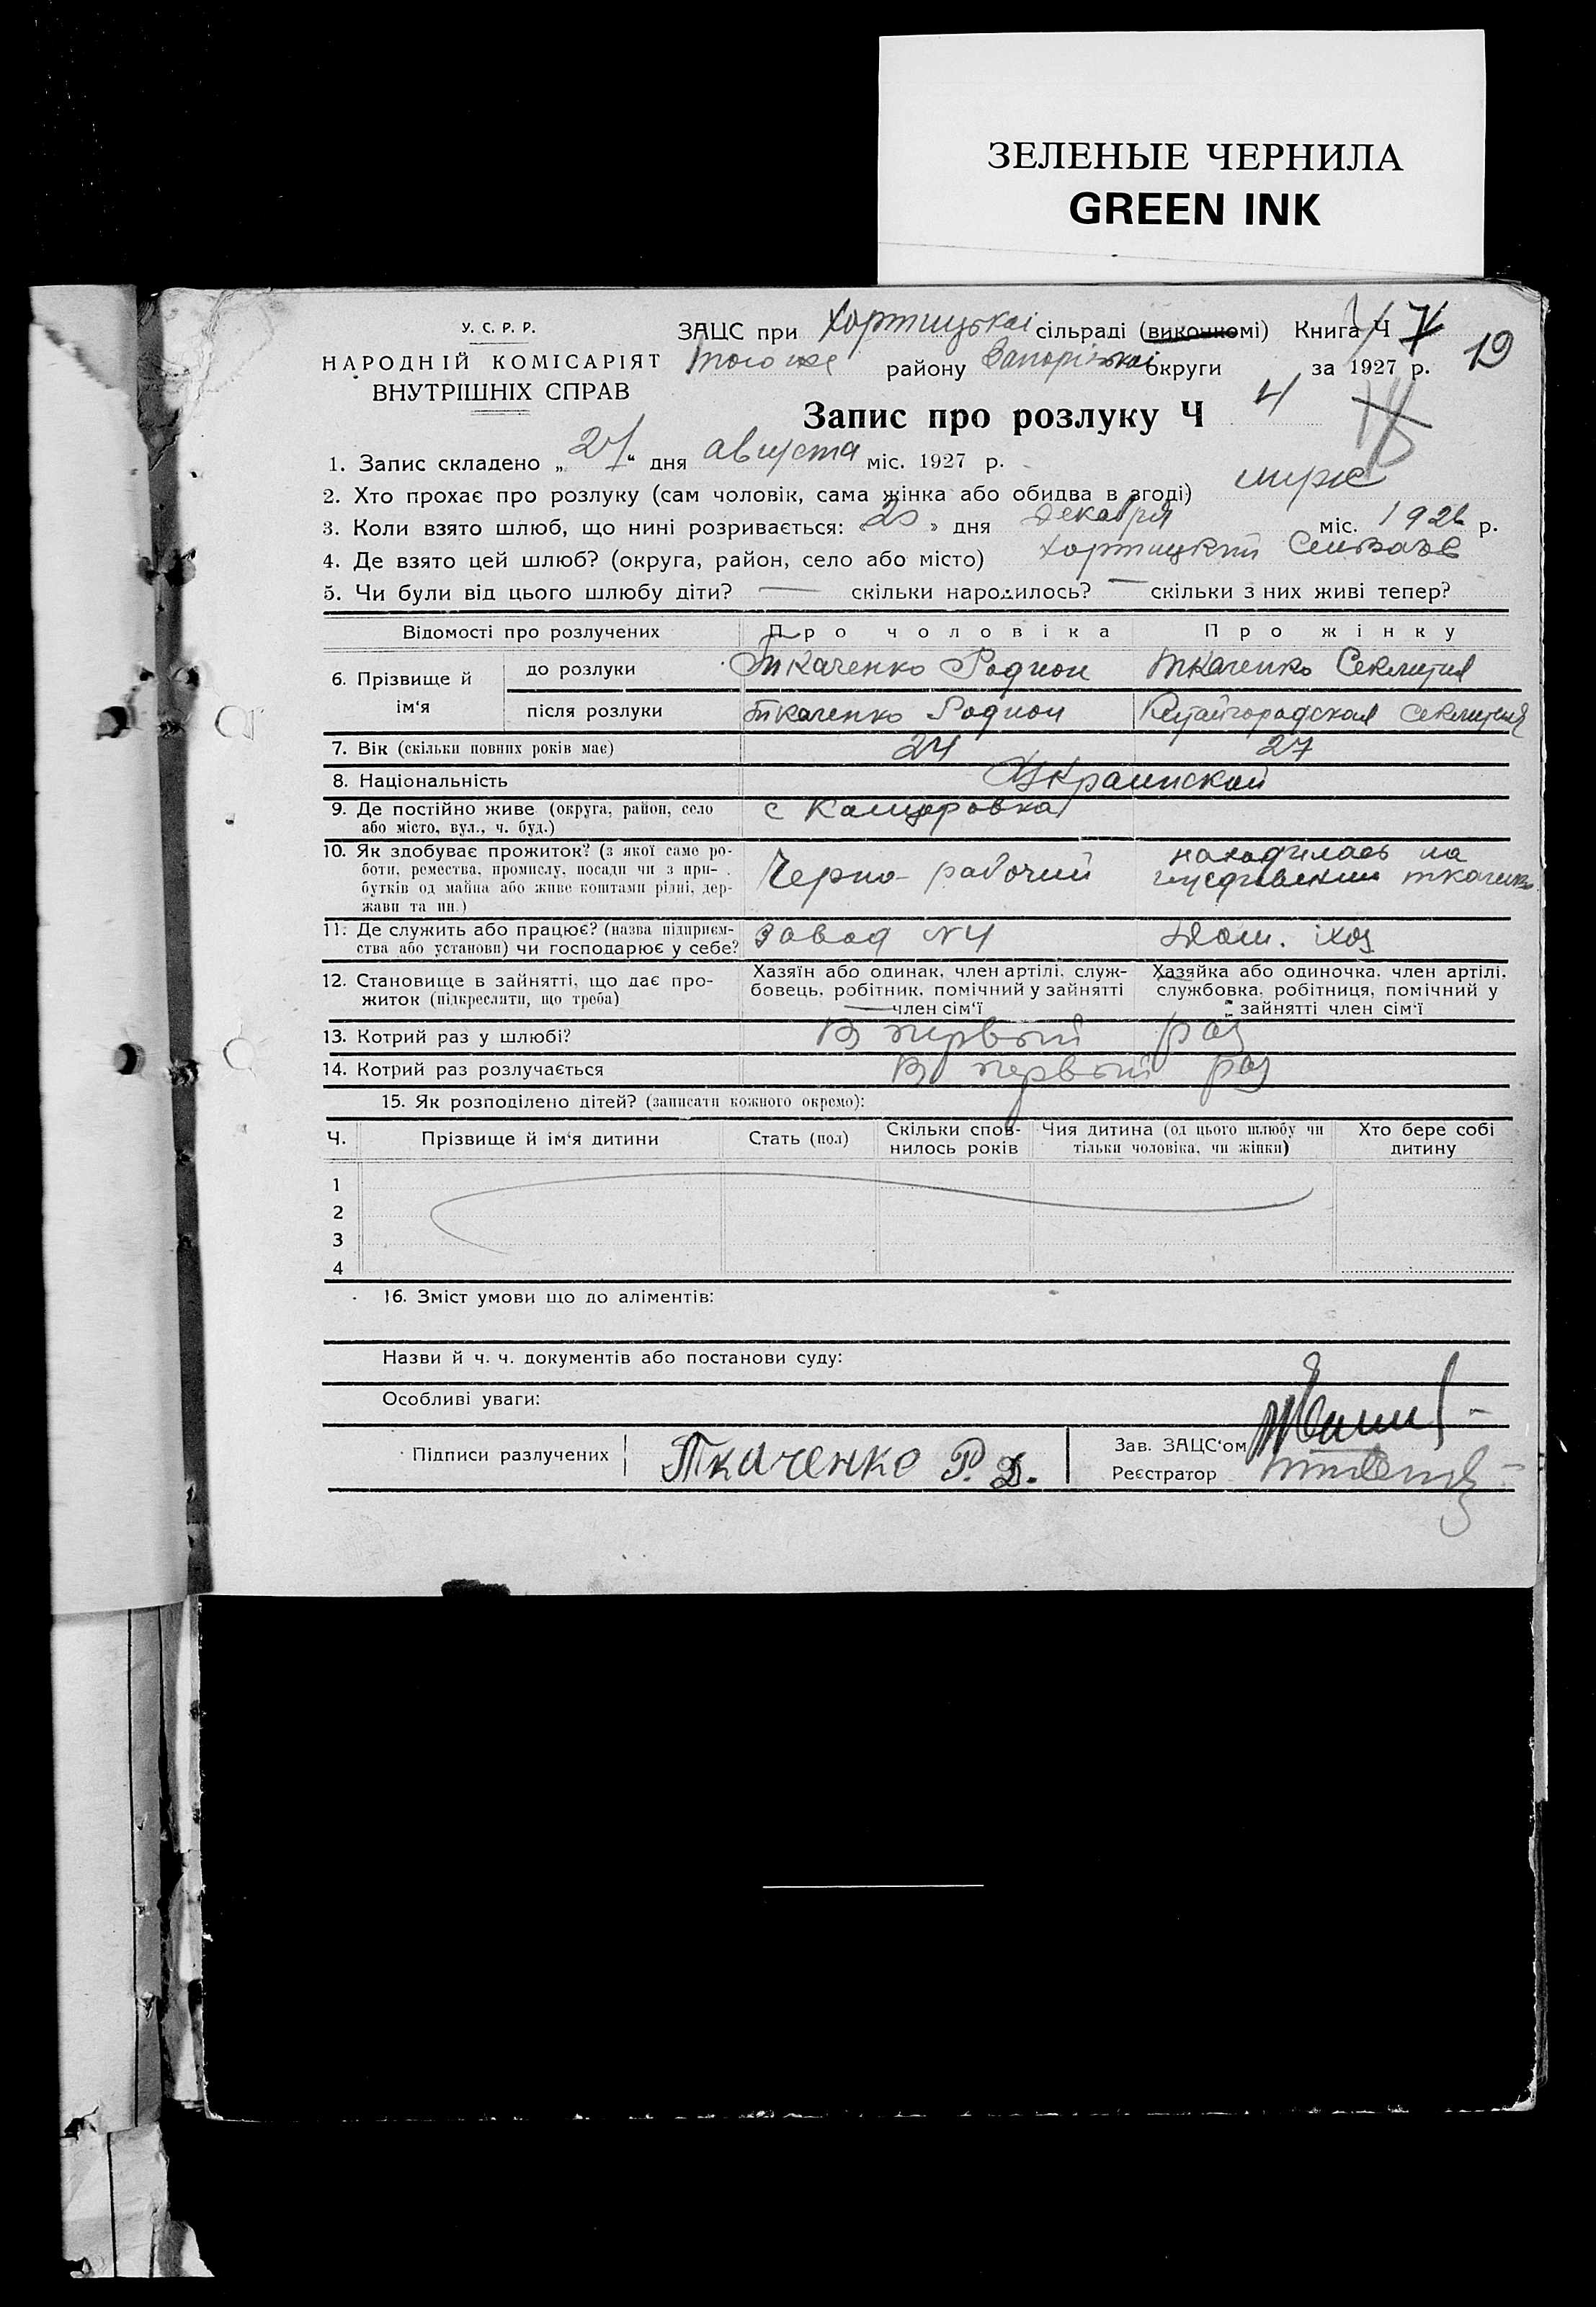 ЗЕЛЕНЫЕ ЧЕРНИЛА
GREEN INK
У. С. Р. Р.
НАРОДНІЙ КОМІСАРІЯТ
ВНУТРІШНІХ СПРАВ
ЗАЦС при Хортицькоі сільраді (виконкомі) Книга Ч 7
19
того же району Запорізькоі округи за 1927 р.
Запис про розлуку Ч 4
1. Запис складено „27“ дня августа міс. 1927 р.
2. Хто прохає про розлуку (сам чоловік, сама жінка або обидва в згоді) муж
3. Коли взято шлюб, що нині розривається: 20 » дня декабря міс. 1926 р.
4. Де взято цей шлюб? (округа, район, село або місто) Хортицкий
5. Чи були від цього шлюбу діти? — скільки народилось? — скільки з них живі тепер?
Відомості про розлучених Про чоловіка Про жінку
6. Прізвище й ім‘я до розлуки Ткаченко Родион Ткаченко Секлития
після розлуки Ткаченко Родион Китайгородская Секлития
7. Вік (скільки повних років має) 24 27
8. Національність Украинской
9. Де постійно живе (округа, район, село або місто, вул., ч. буд.) с
10. Як здобуває прожиток? (з якої саме ро-
боти, ремества, промислу, посади чи з при-
бутків од майна або живе коштами рідні, дер-
жави та ин.)
Черно-рабочий
находилась на
иждивении Ткаченко
11. Де служить або працює? (назва підприєм-
ства або установи) чи господарює у себе?
Завод №4 Дом. хоз
12. Становище в зайнятті, що дає про-
житок (підкреслити, що треба)
Хазяїн або одинак, член артілі, служ-
бовець, робітник, помічний у зайнятті
член сім‘ї
Хазяйка або одиночка, член артілі,
службовка, робітниця, помічний у
зайнятті член сім‘ї
13. Котрий раз у шлюбі? В первый раз
14. Котрий раз розлучається В первый раз
15. Як розподілено дітей? (записати кожного окремо):
Ч. Прізвище й ім‘я дитини Стать (пол) Скільки спов-
нилось років Чия дитина (од цього шлюбу чи
тільки чоловіка, чи жінки) Хто бере собі
дитину
1
2
3
4
16. Зміст умови що до аліментів:
Назви й ч. ч. документів або постанови суду:
Особливі уваги:
Підписи разлучених Ткаченко Р. Д.
Зав. ЗАЦС‘ом
Реєстратор